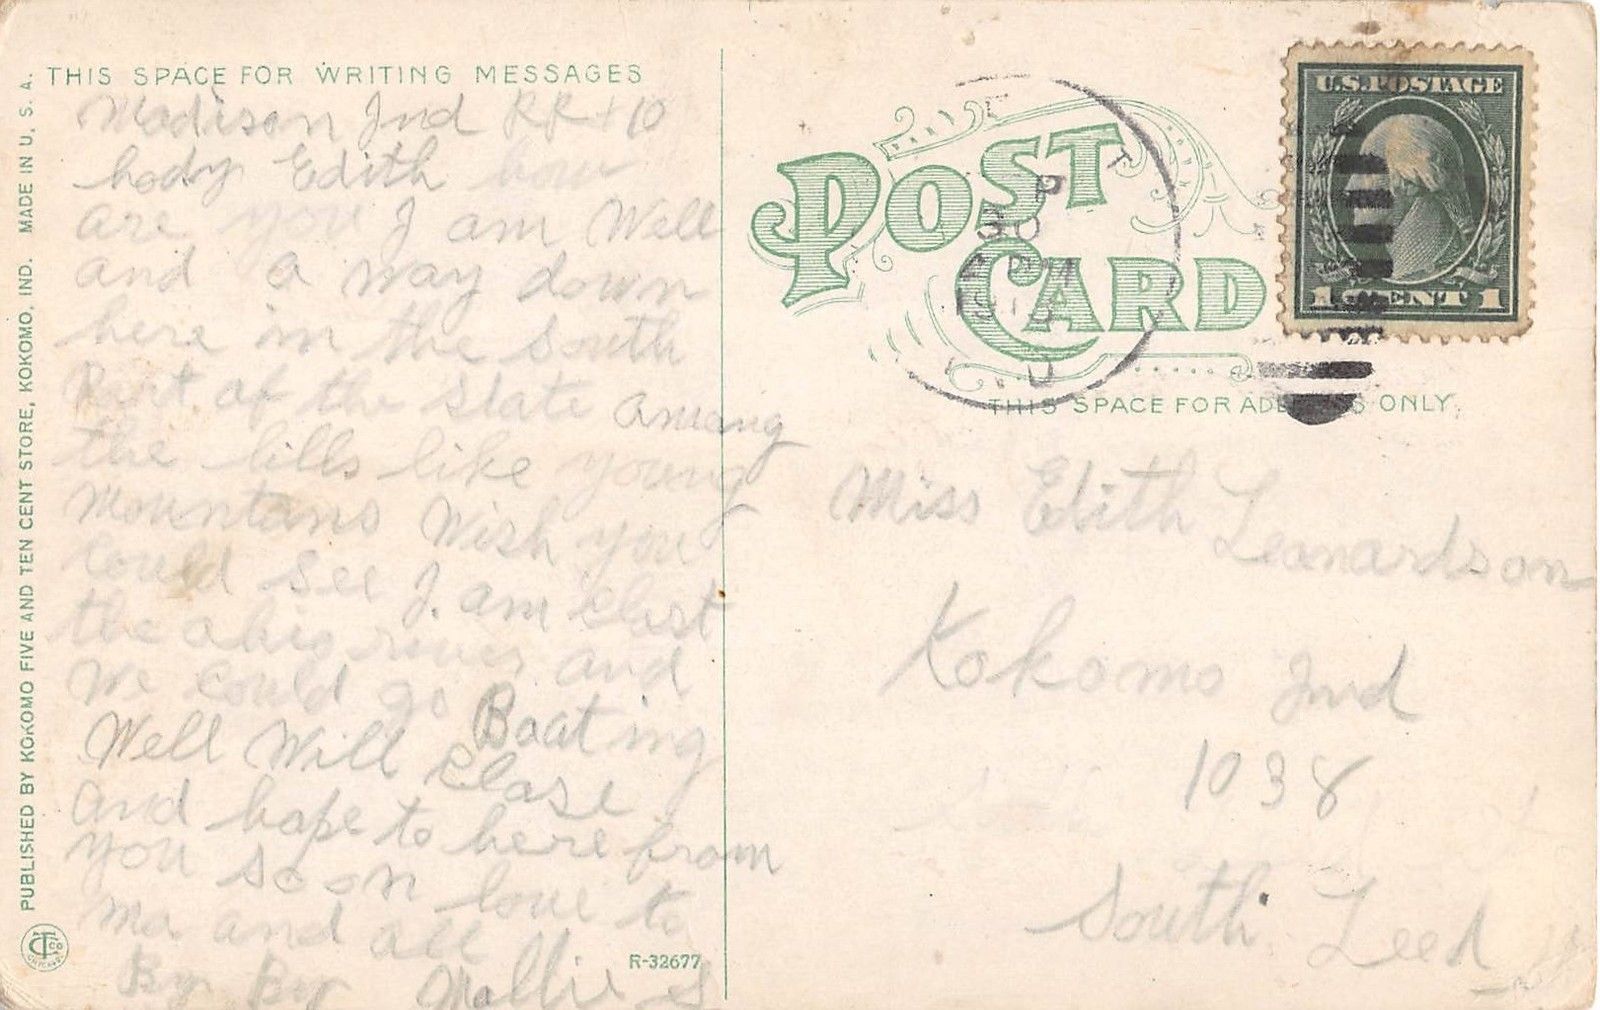 THIS SPACE FOR WRITING MESSAGES
Madison Ind RR 10
hody Edith how
are you I am Well
and a way down
here in the South
Part of the State amoung
the hills like young
Mountans Wish you
could see I. am clost
the ohio river and
We could go Boating
Well Will Close
and hope to here from
you soon love to
ma and all
By By Mollie S
R-32677
PUBLISHED BY KOKOMO FIVE AND TEN CENT STORE, KOKOMO, IND. MADE IN U. S. A.
POST CARD
THIS SPACE FOR ADDRESS ONLY
U.S. POSTAGE
1 CENT 1
30
PM
Miss Edith Leonardson
Kokomo Ind
1038
South Leed